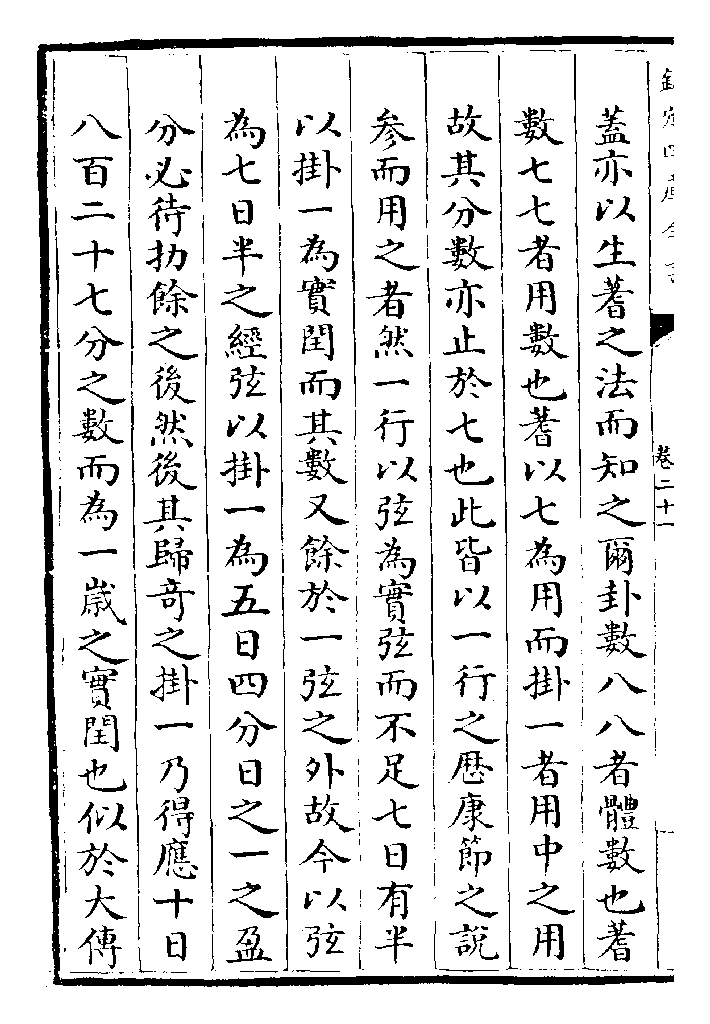 蓋亦以生蓍之法而知之爾卦數八八者體數也蓍
數七七者用數也蓍以七為用而掛一者用中之用
故其分數亦止於七也此皆以一行之厯康節之說
參而用之者然一行以弦為實弦而不足七日有半
以掛一為實閏而其數又餘於一弦之外故今以弦
為七日半之經弦以掛一為五日四分日之一之盈
分必待扐餘之後然後其歸奇之掛一乃得應十日
八百二十七分之數而為一歲之實閏也似於大傳
卷二十一